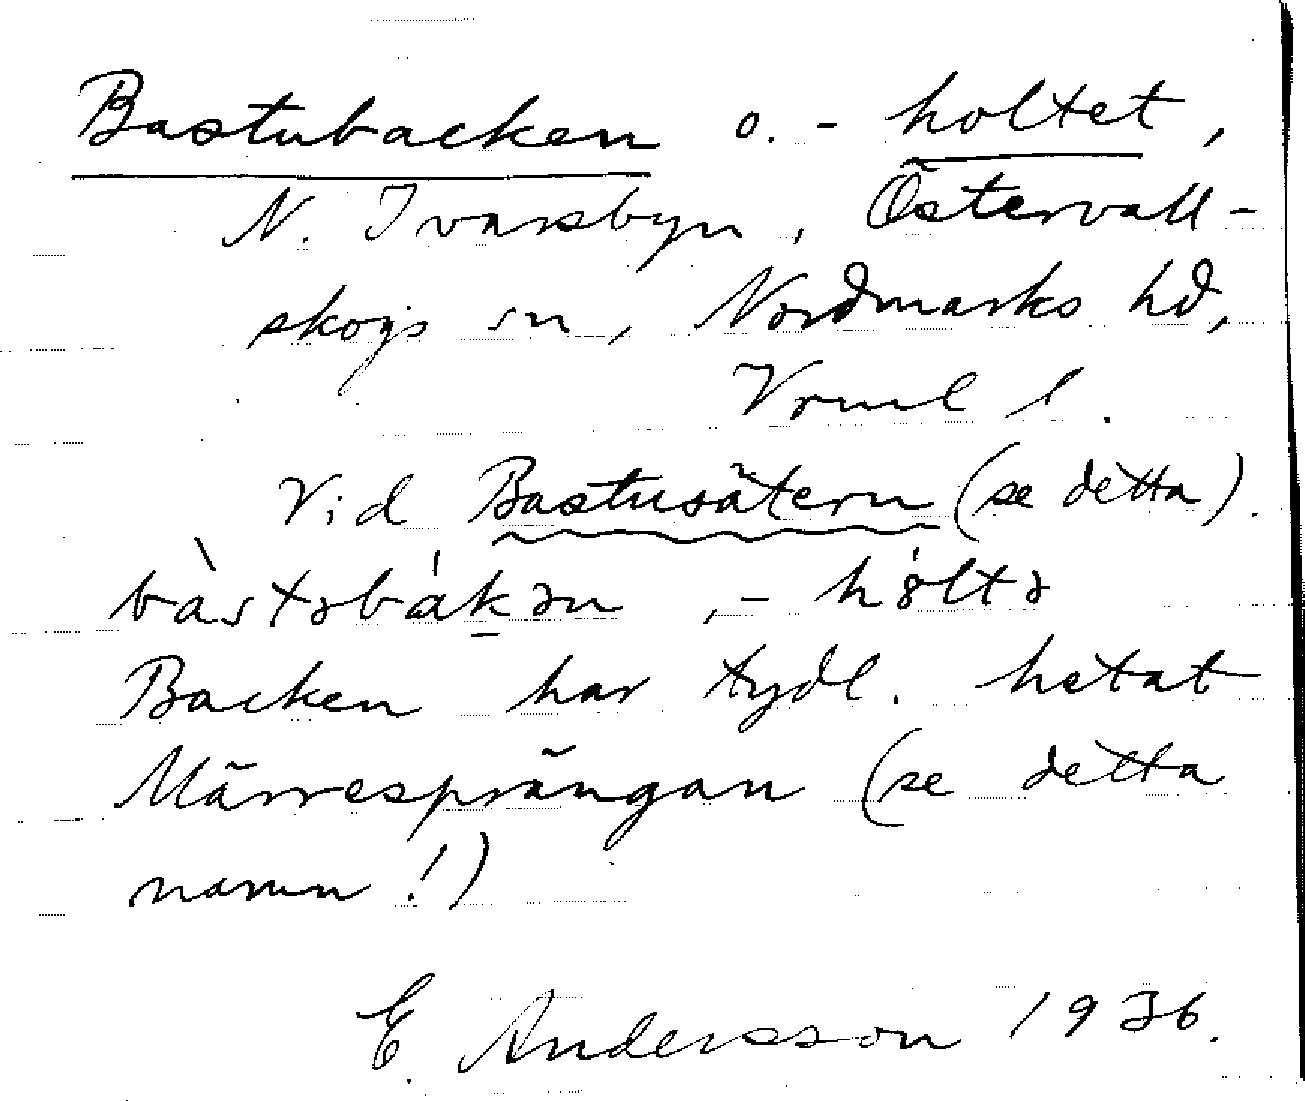 Bastubacken o. -holtet,
N. Ivarsbyn, Östervall-
skogs sn, Nordmarks hd,
Vrml l.
Vid Bastusätern (se detta).
bàstəbákən, -hóltə
Backen har tydl. hetat
Märresprängan (se detta
namn!)
E. Andersson 1936.